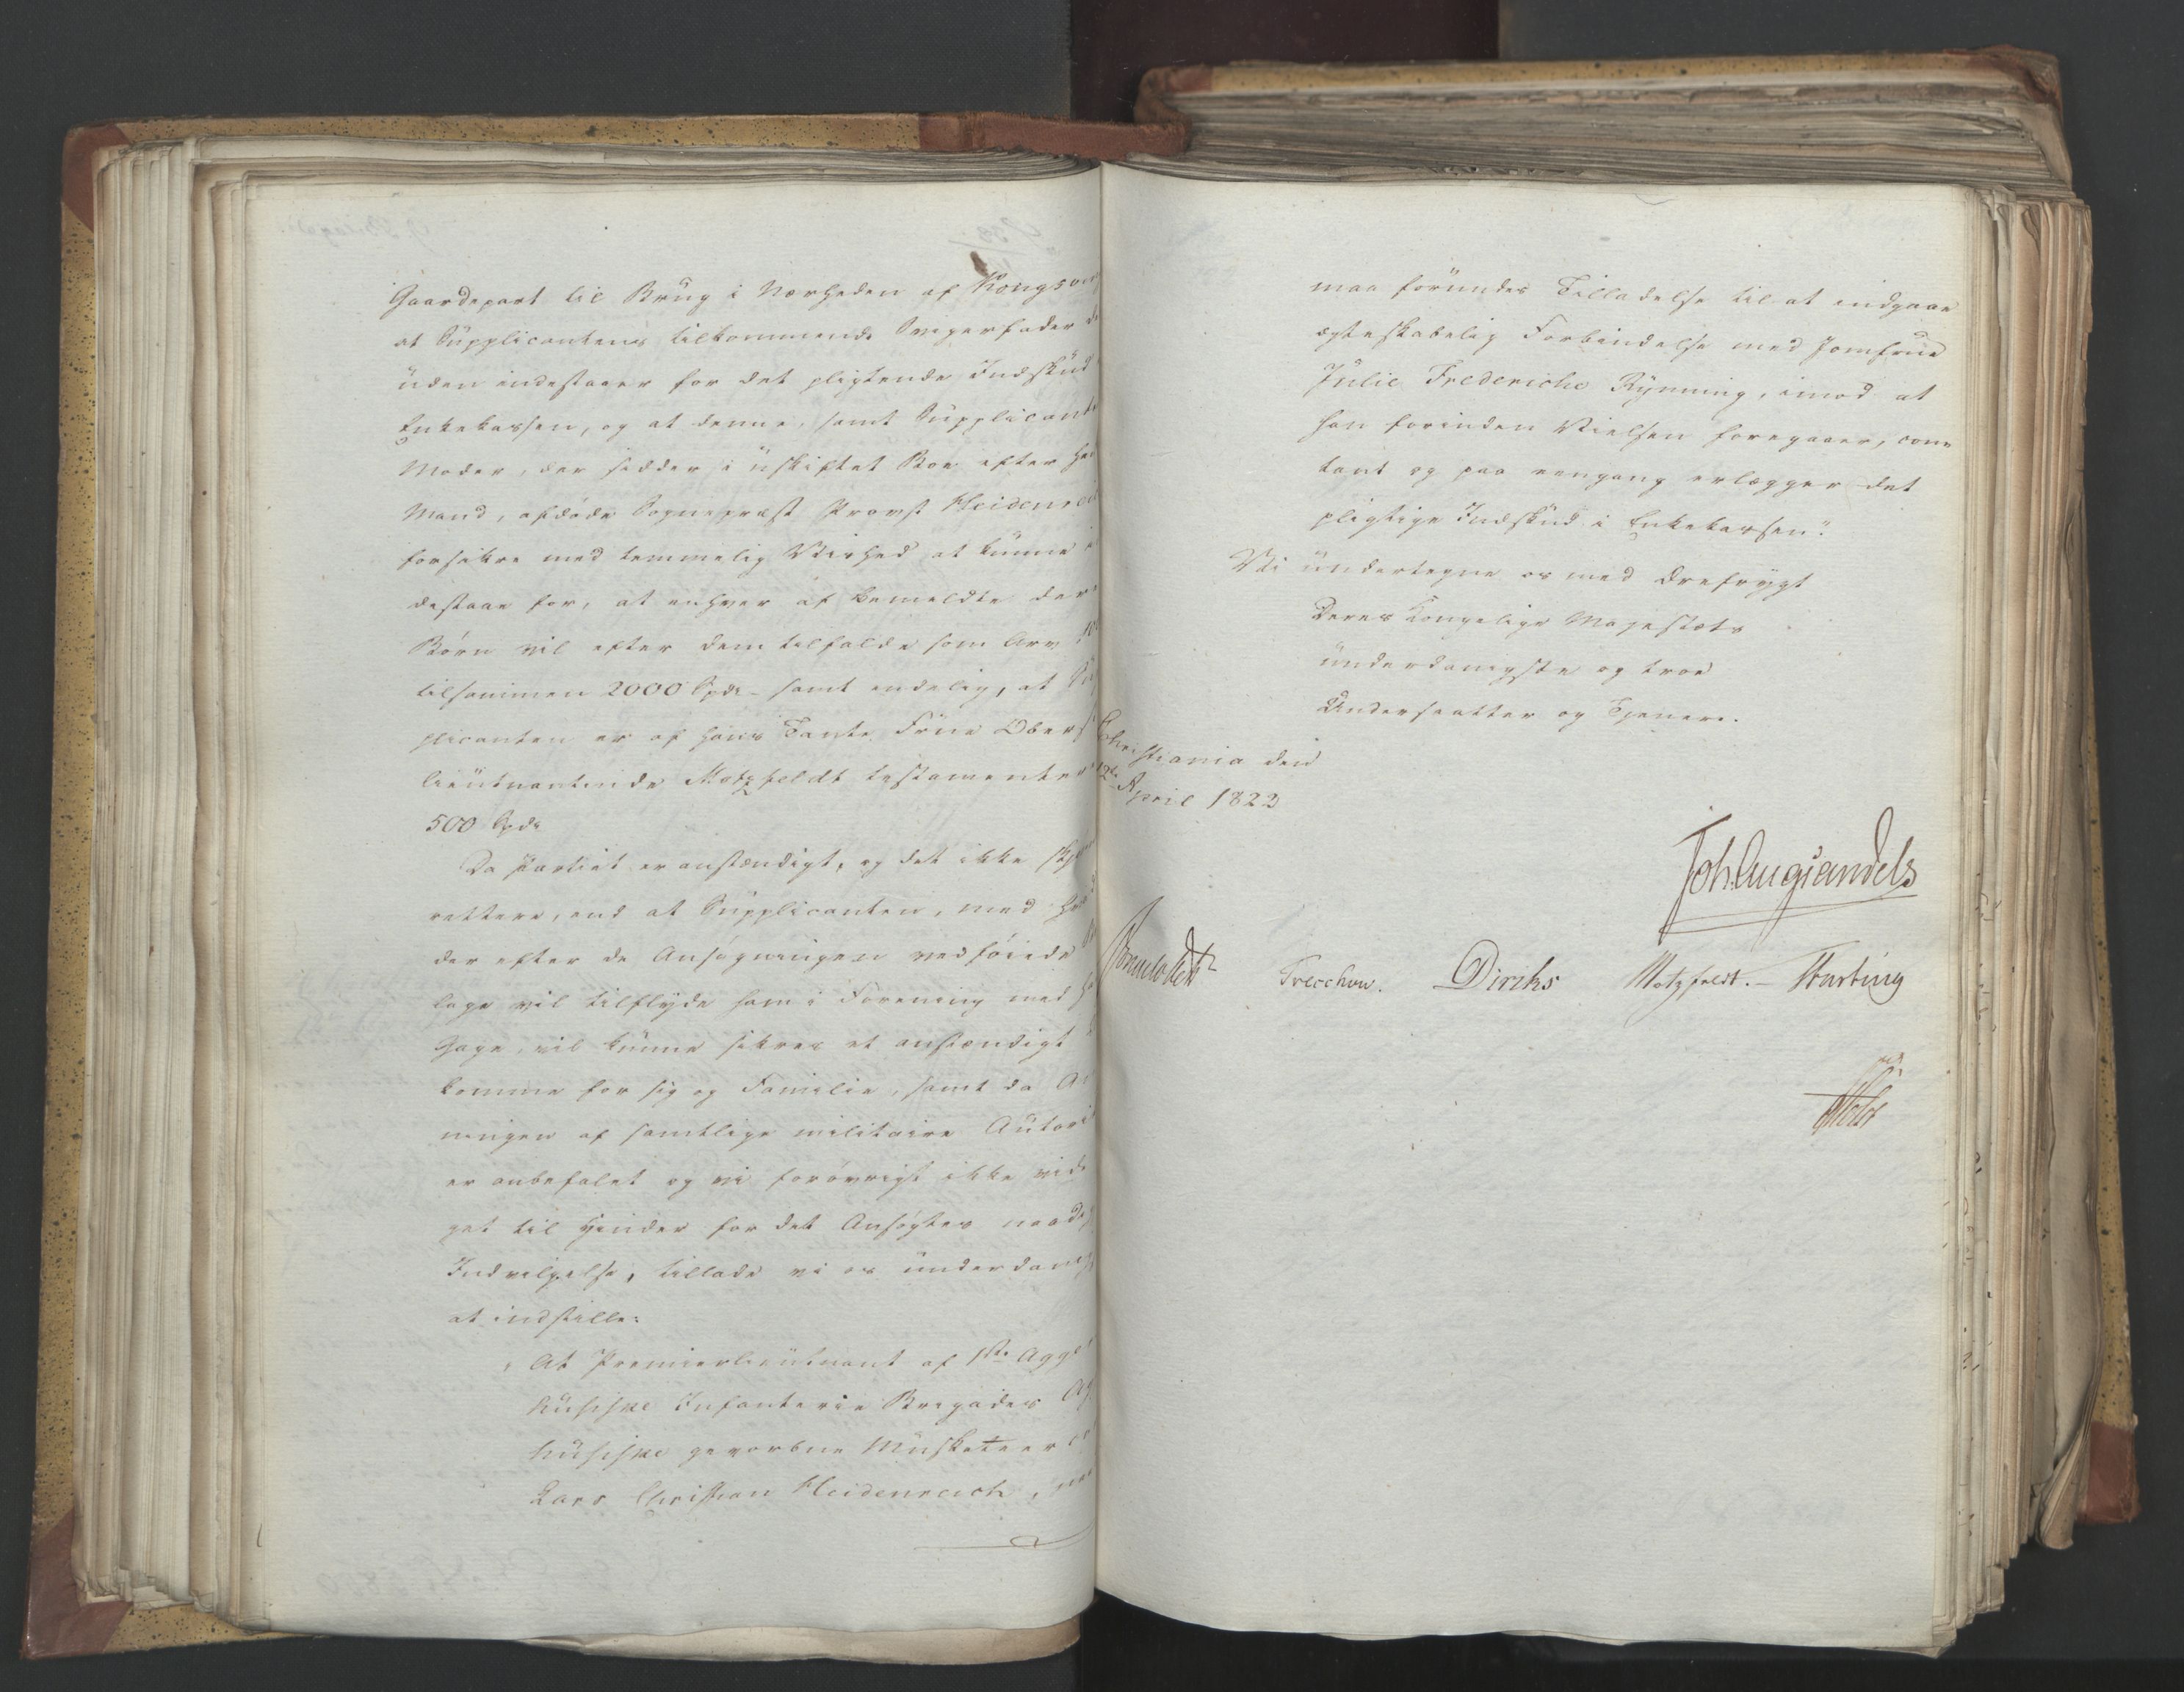 Gaardepart til Brug i Nærheden af Kongsvin
at Supplicantens tilkommende Svigerfader
uden indestaaer for det pligtende Indskud
Enkekassen, og at denne, samt Supplicant
Moder, der sidder i uskiftet Boe efter
Mand, afdøde Sognepræst Provst Heidenrei
forsikre med temmelig Vished at kunne
destaae for, at enhver af bemeldte der
Børn vil efter dem tilfalde som Arv
tilsammen 2000 Spdr - samt endelig, at Sup
plicanten er af hans Tante Frue Oberst
lieutnantinde Motzfeldt testamenteret
500 Spdr
Da Partiet er anstændigt, og det ikke
rettere, end at Supplicanten, med
der efter de Ansøgningen vedføiede
lage vil tilflyde ham i Forening med
Gage, vil kunne sikres et anstændigt
komme for sig og Familie, samt da An
ningen af samtlige militaire Autori
er anbefalet og vi forøvrigt ikke vide
get til Hinder for det Ansøgtes naadig
Indvilgelse, tillade vi os underdanigst
at indstille:
"At Premierlieutnant af 1ste Agge
huusiske Infanterie Brigades
huusiske gevorbne Musketeer
Lars Christian Heidenreich,
maa forundes Tilladelse til at indgaae
ægteskabelig Forbindelse med Jomfrue
Julie Frederiche Rynning, imod at
han forinden Vielsen foregaaer, con-
tant og paa eengang erlægger det
pligtige Indskud i Enkekassen."
Vi undertegne os med Ærefrygt
Deres Kongelige Majestæts
underdanigste og troe
Undersaatter og Tjenere.
Christiania den
12te April 1822
Joh. Aug Sandels
Sommerhielm
Treschow.
Diriks
Motzfeldt.
Fasting
Holst